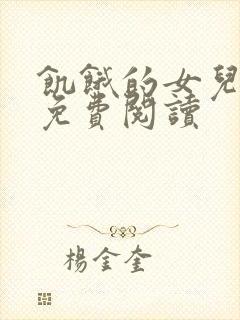 飢餓的女兒
免費閱讀
楊金奎